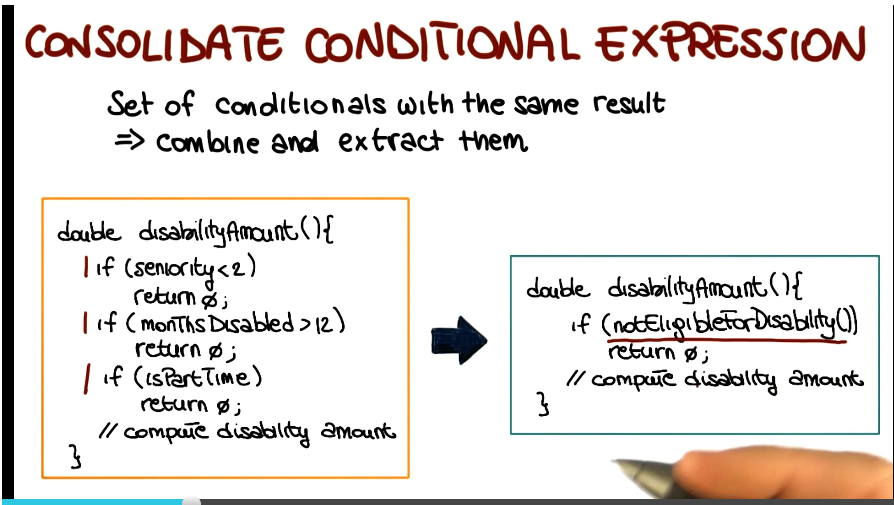 CONSOLIDATE CONDITIONAL EXPRESSION
Set of conditionals with the same result
=> combine and extract them
double disabilityAmount(){
if (seniority<2)
return 0;
if (monthsDisabled>12)
return 0;
if (isPartTime)
return 0;
// compute disability amount
}
double disabilityAmount(){
if (notEligibleForDisability())
return 0;
// compute disability amount
}